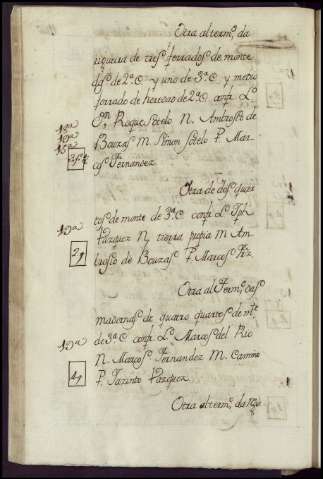 Otra al term.º da
figueira de tres ferrados de monte
dos de 2ª C y uno de 3ª C y medio
ferrado de herreno de 2ª C confi. L.
D.n Roque Sotelo N. Ambrosio de
18ª
19ª
18ª
Bouzas M. Simon Sotelo P. Mar-
cos Fernandez
Otra de dos quar
tos de monte de 3ª C confi. L. Jph
19ª
Vazquez N. tierra propia M. Am-
2q
brosio de Bouzas P. Marcos Frz.
Otra al Term.º das
maduras de quatro quartos de m.te
19ª
de 3ª C confi. L. Marcos del Rio
N. Marcos Fernandez M. Camino
4q
P. Jacinto Vazquez
Otra al term.º da